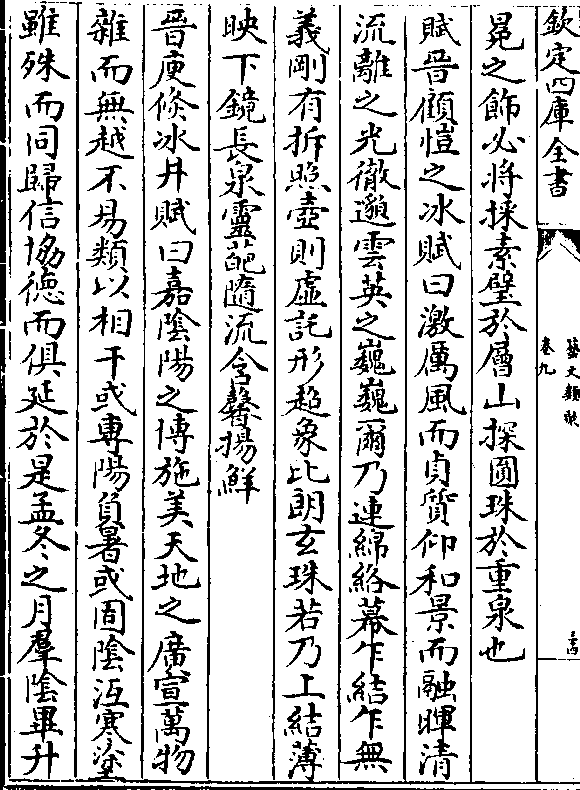 欽定四庫全書
藝文類聚
卷九
晃之飾必将採素璧於層山探圓珠於重泉也
賦晉顧愷之冰賦曰激厲風而貞質仰和景而融暉清
流離之光徹邈雲英之巍巍爾乃連綿絡幕乍結乍無
義剛有折照壺則虚託形超象比朗玄珠若乃上結薄
映下鏡長泉靈葩隨流含馨揚鮮
晉庾儵冰井賦曰嘉陰陽之博施美天地之廣宣萬物
雜而無越不易類以相干或専陽負暑或固陰沍寒塗
雖殊而同歸信協徳而俱延於是孟冬之月羣陰畢升